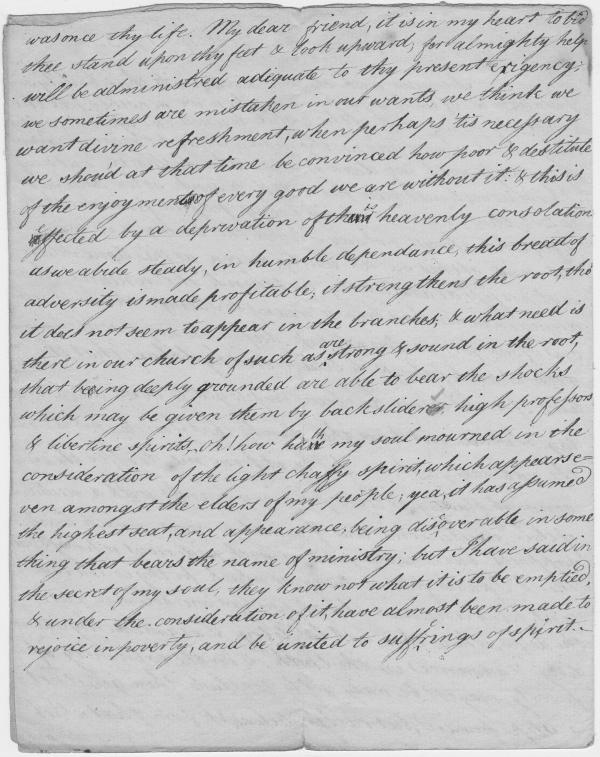 was once thy life. My dear friend, it is in my heart to bid
thee stand upon thy feet & look upward, for almighty help
will be administred adiquate to thy present exigency;
we sometimes are mistaken in our wants, we think we
want divine refreshment, when perhaps 'tis necessary
we shou'd at that time be convinced how poor & destitute
of the enjoyment of every good we are without it: & this is
effected by a deprivation of this heavenly consolation
as we abide steady, in humble dependance, this bread of
adversity is made profitable, it strengthens the root, tho'
it does not seem to appear in the branches; & what need is
there in our church of such as are strong & sound in the root,
that being deeply grounded are able to bear the shocks
which may be given them by backsliders, high professors
& libertine spirits, oh! how hath my soul mourned in the
consideration of the light chaffy spirit, which appears e=
ven amongst the elders of my people; yea, it has assumed
the highest seat, and appearance, being discoverable in some
thing that bears the name of ministry; but I have said in
the secret of my soul, they know not what it is to be emptied,
& under the consideration of it, have almost been made to
rejoice in poverty, and be united to suffrings of spirit.